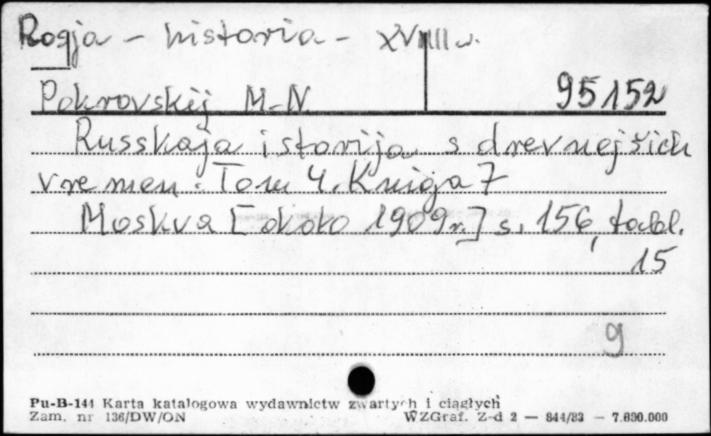 Rosja - historia - XVIII w.
Pokrovskij M-N 95152
Russkaja istorija s drevnejšich
vremen. Tom 4. Kniga 7
Moskva [około 1909 r.] s. 156, tabl.
15
9
Pu-B-141 Karta katalogowa wydawnictw zwartych i ciągłych
Zam. nr 136/DW/ON WZGraf. Z-d 2 — 844/83 — 7.000.000